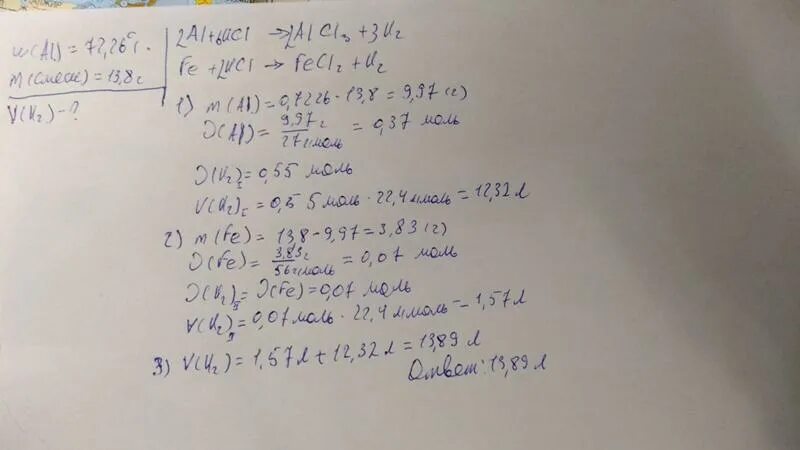 w(Al) = 72,26%.
m(смеси) = 13,8 г
V(H₂) - ?
2Al + 6HCl → 2AlCl₃ + 3H₂
Fe + 2HCl → FeCl₂ + H₂
1) m(Al) = 0,7226 · 13,8 = 9,97 (г)
υ(Al) = 9,97 г / 27 г/моль = 0,37 моль
υ(H₂)I = 0,55 моль
V(H₂)I = 0,55 моль · 22,4 л/моль = 12,32 л
2) m(Fe) = 13,8 - 9,97 = 3,83 (г)
υ(Fe) = 3,83 г / 56 г/моль = 0,07 моль
υ(H₂)II = υ(Fe) = 0,07 моль
V(H₂)II = 0,07 моль · 22,4 л/моль = 1,57 л
3) V(H₂) = 1,57 л + 12,32 л = 13,89 л
Ответ: 13,89 л